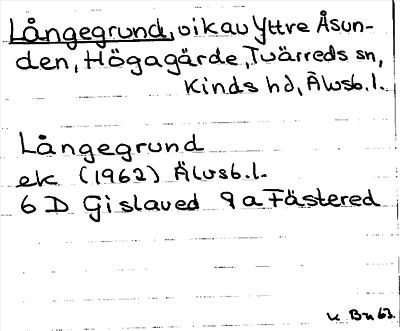 Långegrund, vik av Yttre Åsun-
den, Högagärde, Tvärreds sn,
Kinds hd, Älvsb. l.
Långegrund
ek (1962) Älvsb. l.
6 D Gislaved 9 a Fästered
K. Bn 63